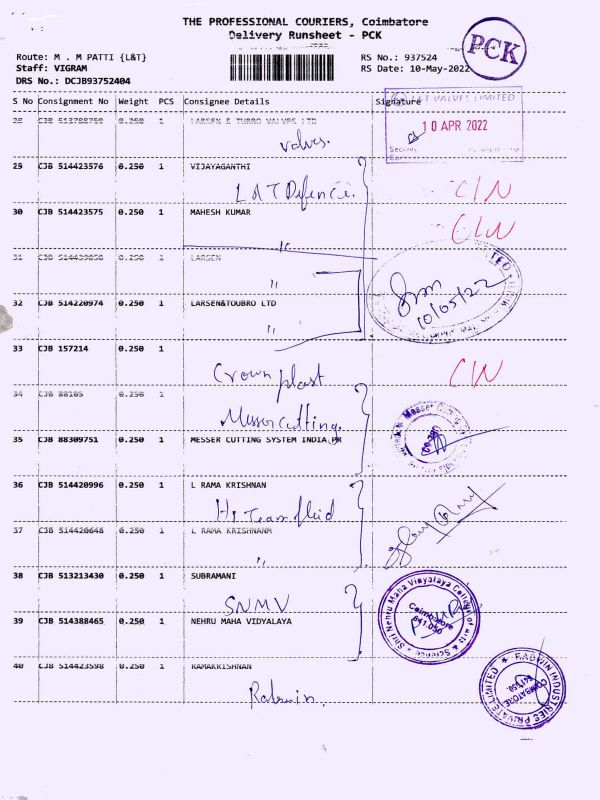 THE PROFESSIONAL COURIERS, Coimbatore
Delivery Runsheet - PCK
PCK
Route: M . M PATTI {L&T}
Staff: VIGRAM
DRS No.: DCJB93752404
RS No.: 937524
RS Date: 10-May-2022
S No Consignment No Weight PCS Consignee Details Signature
28 CJB 0.250 1 LARSEN & TUBRO VALVES LTD
valves.
L&T VALVES LIMITED
10 APR 2022
29 CJB 514423576 0.250 1 VIJAYAGANTHI
L&T Defence. C/N
30 CJB 514423575 0.250 1 MAHESH KUMAR
"
C/N
31 CJB 0.250 1 LARSEN
"
10/05/22
32 CJB 514220974 0.250 1 LARSEN&TOUBRO LTD
"
33 CJB 157214 0.250 1
Crown plast C/N
34 CJB 88165 0.250 1
Messer cutting.
35 CJB 88309751 0.250 1 MESSER CUTTING SYSTEM INDIA PR
36 CJB 514420996 0.250 1 L RAMA KRISHNAN
37 CJB 514420648 0.250 1 L RAMA KRISHNANM
"
38 CJB 513213430 0.250 1 SUBRAMANI
SNMV
39 CJB 514388465 0.250 1 NEHRU MAHA VIDYALAYA
Shri Nehru Maha Vidyalaya College of Arts & Science
Coimbatore
641 050
40 CJB 514423598 0.250 1 RAMAKRISHNAN
Radwin.
RADWIN INDUSTRIES PRIVATE LIMITED
COIMBATORE